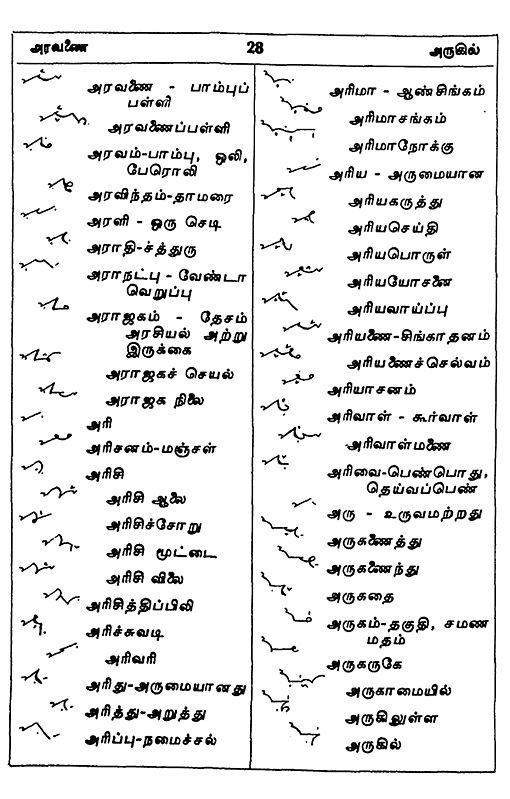 அரவணை 28 அருகில்
அரவணை - பாம்புப்
பள்ளி
அரவணைப்பள்ளி
அரவம்-பாம்பு, ஒலி,
பேரொலி
அரவிந்தம்-தாமரை
அரளி - ஒரு செடி
அராதி-சத்துரு
அராநட்பு - வேண்டா
வெறுப்பு
அராஜகம் - தேசம்
அரசியல் அற்று
இருக்கை
அராஜகச் செயல்
அராஜக நிலை
அரி
அரிசனம்-மஞ்சள்
அரிசி
அரிசி ஆலை
அரிசிச்சோறு
அரிசி மூட்டை
அரிசி விலை
அரிசித்திப்பிலி
அரிச்சுவடி
அரிவரி
அரிது-அருமையானது
அரித்து-அறுத்து
அரிப்பு-நமைச்சல்
அரிமா - ஆண்சிங்கம்
அரிமாசங்கம்
அரிமாநோக்கு
அரிய - அருமையான
அரியகருத்து
அரியசெய்தி
அரியபொருள்
அரியயோசனை
அரியவாய்ப்பு
அரியணை-சிங்காதனம்
அரியணைச்செல்வம்
அரியாசனம்
அரிவாள் - கூர்வாள்
அரிவாள்மணை
அரிவை-பெண்பொது,
தெய்வப்பெண்
அரு - உருவமற்றது
அருகணைத்து
அருகணைந்து
அருகதை
அருகம்-தகுதி, சமண
மதம்
அருகருகே
அருகாமையில்
அருகிலுள்ள
அருகில்